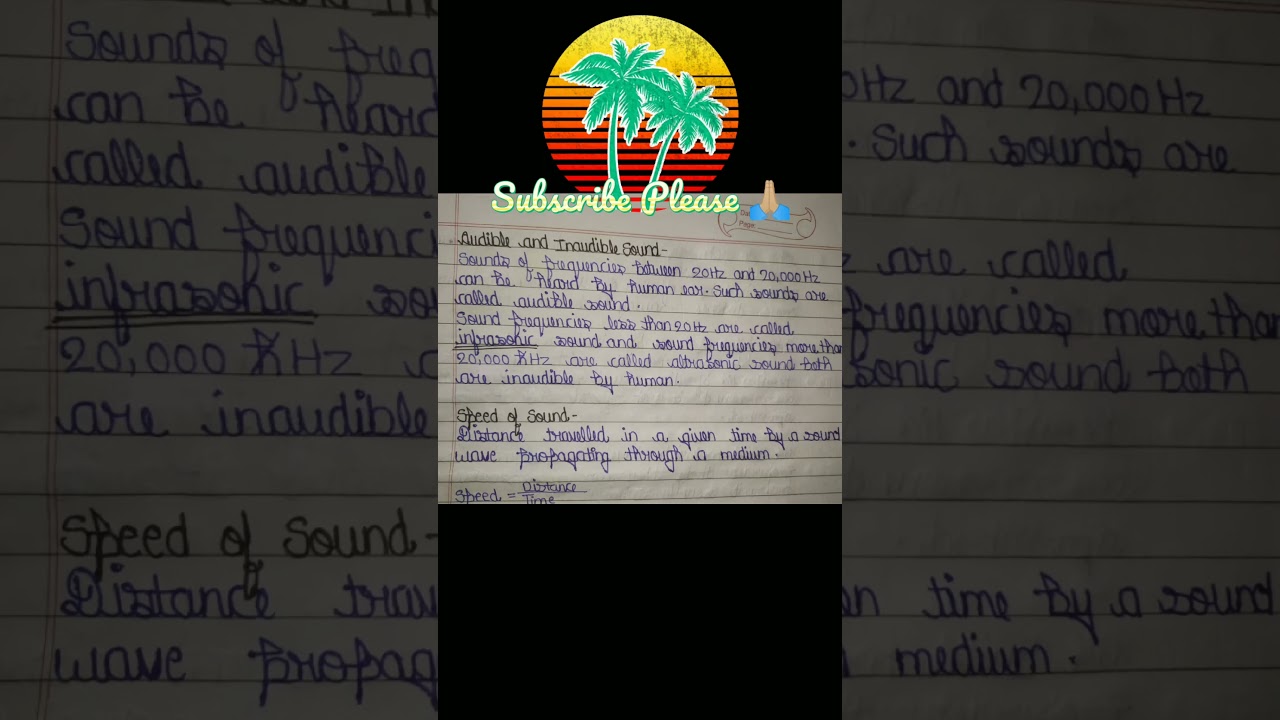 Subscribe Please 🙏
Page
Audible and Inaudible Sound-
Sounds of frequencies between 20Hz and 20,000Hz
can be heard by human ear. Such sounds are
called audible sound.
Sound frequencies less than 20Hz are called
infrasonic sound and sound frequencies more than
20,000 Hz are called ultrasonic sound both
are inaudible by human.
Speed of Sound-
Distance travelled in a given time by a sound
wave propagating through a medium.
Speed = Distance
Time